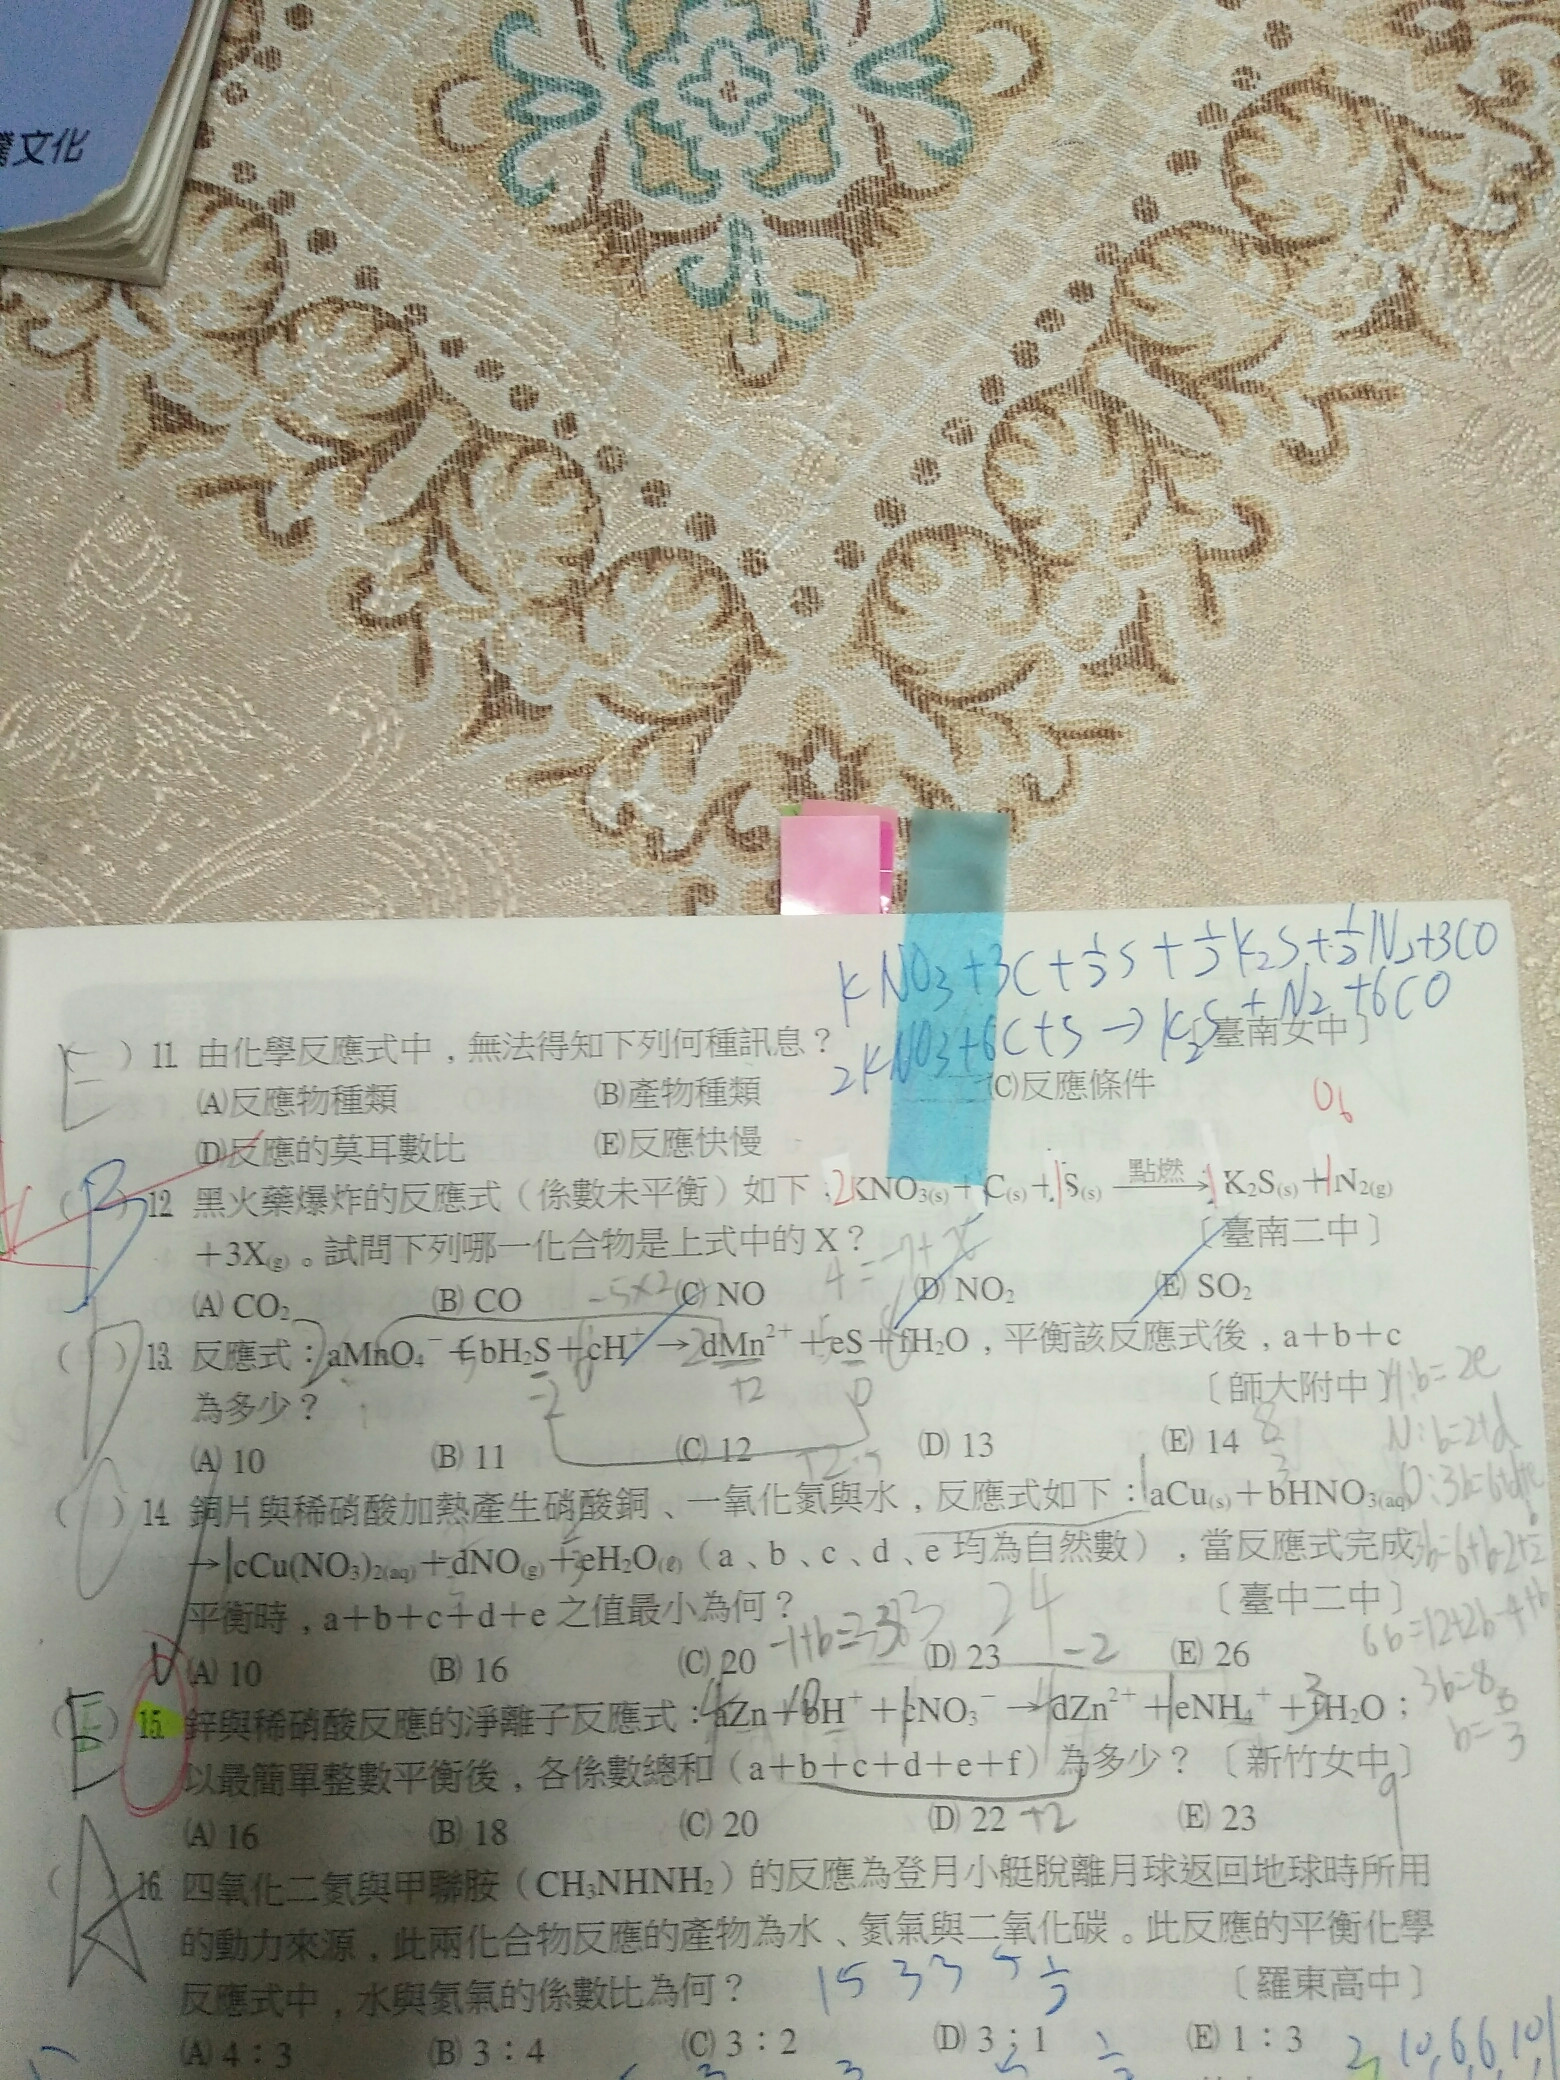 文化
KNO₃+3C+½S+½K₂S+½N₂+3CO
2KNO₃+6C+S→K₂S+N₂+6CO
(E) 11. 由化學反應式中，無法得知下列何種訊息？〔臺南女中〕
(A)反應物種類 (B)產物種類 (C)反應條件
(D)反應的莫耳數比 (E)反應快慢
(B) 12. 黑火藥爆炸的反應式（係數未平衡）如下：2KNO₃(s)＋C(s)＋1S(s) 點燃→ 1K₂S(s)＋1N₂(g)
＋3X(g)。試問下列哪一化合物是上式中的X？〔臺南二中〕
(A) CO₂ (B) CO (C) NO (D) NO₂ (E) SO₂
(D) 13. 反應式：aMnO₄⁻＋bH₂S＋cH⁺→dMn²⁺＋eS＋fH₂O，平衡該反應式後，a＋b＋c
為多少？〔師大附中〕
(A) 10 (B) 11 (C) 12 (D) 13 (E) 14
14. 銅片與稀硝酸加熱產生硝酸銅、一氧化氮與水，反應式如下：aCu(s)＋bHNO₃(aq)
→cCu(NO₃)₂(aq)＋dNO(g)＋eH₂O(ℓ)（a、b、c、d、e均為自然數），當反應式完成
平衡時，a＋b＋c＋d＋e之值最小為何？〔臺中二中〕
(A) 10 (B) 16 (C) 20 (D) 23 (E) 26
(E) 15. 鋅與稀硝酸反應的淨離子反應式：aZn＋bH⁺＋cNO₃⁻→dZn²⁺＋eNH₄⁺＋fH₂O；
以最簡單整數平衡後，各係數總和（a＋b＋c＋d＋e＋f）為多少？〔新竹女中〕
(A) 16 (B) 18 (C) 20 (D) 22 (E) 23
(A) 16. 四氧化二氮與甲聯胺（CH₃NHNH₂）的反應為登月小艇脫離月球返回地球時所用
的動力來源，此兩化合物反應的產物為水、氮氣與二氧化碳。此反應的平衡化學
反應式中，水與氮氣的係數比為何？〔羅東高中〕
(A) 4：3 (B) 3：4 (C) 3：2 (D) 3：1 (E) 1：3
H:b=2e
N:b=2+d
6b=12+2b-4+b
3b=8
b=8/3